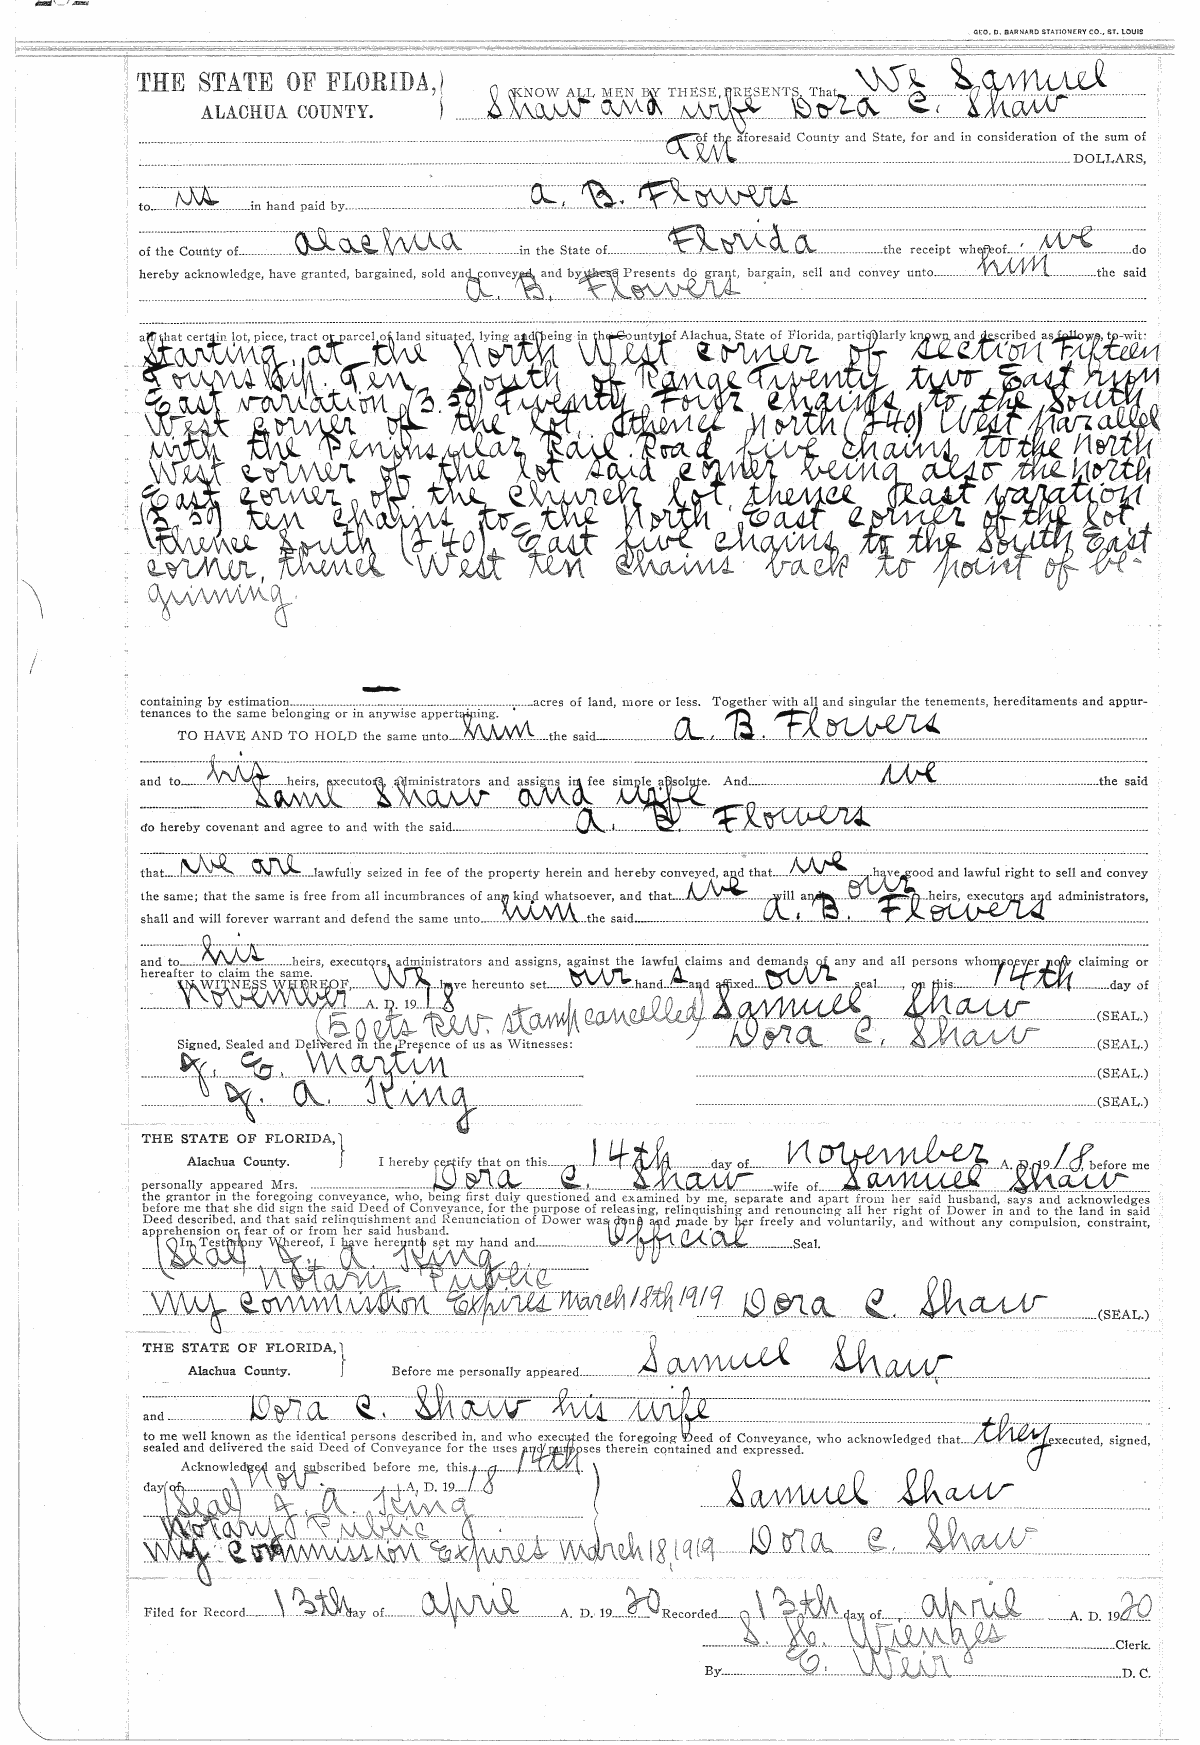 GEO. D. BARNARD STATIONERY CO., ST. LOUIS
THE STATE OF FLORIDA,
ALACHUA COUNTY.
KNOW ALL MEN BY THESE PRESENTS, That We Samuel
Shaw and wife Dora C. Shaw
of the aforesaid County and State, for and in consideration of the sum of
Ten DOLLARS,
to us in hand paid by A. B. Flowers
of the County of Alachua in the State of Florida the receipt whereof we do
hereby acknowledge, have granted, bargained, sold and conveyed, and by these Presents do grant, bargain, sell and convey unto him the said
A. B. Flowers
all that certain lot, piece, tract or parcel of land situated, lying and being in the County of Alachua, State of Florida, particularly known and described as follows, to-wit:
Starting at the North West corner of Section Fifteen
Township Ten South of Range Twenty two East run
East variation (3.50) Twenty Four chains to the South
West corner of the lot, thence North (740) West parallel
with the Peninsular Rail Road five chains to the North
West corner of the lot said corner being also the North
East corner of the church lot thence East varation
(3.50) ten chains to the North East corner of the lot,
thence South (740) East five chains to the South East
corner, thence West ten chains back to point of be-
ginning.
containing by estimation — acres of land, more or less. Together with all and singular the tenements, hereditaments and appur-
tenances to the same belonging or in anywise appertaining.
TO HAVE AND TO HOLD the same unto him the said A. B. Flowers
and to his heirs, executors, administrators and assigns in fee simple absolute. And we the said
Saml Shaw and wife
do hereby covenant and agree to and with the said A. B. Flowers
that we are lawfully seized in fee of the property herein and hereby conveyed, and that we have good and lawful right to sell and convey
the same; that the same is free from all incumbrances of any kind whatsoever, and that we will and our heirs, executors and administrators,
shall and will forever warrant and defend the same unto him the said A. B. Flowers
and to his heirs, executors, administrators and assigns, against the lawful claims and demands of any and all persons whomsoever now claiming or
hereafter to claim the same.
IN WITNESS WHEREOF, We have hereunto set our hand s and affixed our seal, on this 14th day of
November A. D. 19 18
(50 cts Rev. stamp cancelled) Samuel Shaw (SEAL.)
Dora C. Shaw (SEAL.)
Signed, Sealed and Delivered in the Presence of us as Witnesses:
J. G. Martin (SEAL.)
J. A. King (SEAL.)
THE STATE OF FLORIDA,
Alachua County.
I hereby certify that on this 14th day of November A. D. 19 18, before me
personally appeared Mrs. Dora C. Shaw wife of Samuel Shaw
the grantor in the foregoing conveyance, who, being first duly questioned and examined by me, separate and apart from her said husband, says and acknowledges
before me that she did sign the said Deed of Conveyance, for the purpose of releasing, relinquishing and renouncing all her right of Dower in and to the land in said
Deed described, and that said relinquishment and Renunciation of Dower was done and made by her freely and voluntarily, and without any compulsion, constraint,
apprehension or fear of or from her said husband.
In Testimony Whereof, I have hereunto set my hand and Official Seal.
(Seal) J. A. King
Notary Public
My Commission Expires March 18th 1919 Dora C. Shaw (SEAL.)
THE STATE OF FLORIDA,
Alachua County.
Before me personally appeared Samuel Shaw
and Dora C. Shaw his wife
to me well known as the identical persons described in, and who executed the foregoing Deed of Conveyance, who acknowledged that they executed, signed,
sealed and delivered the said Deed of Conveyance for the uses and purposes therein contained and expressed.
Acknowledged and subscribed before me, this 14th
day of Nov. A. D. 19 18
(Seal) J. A. King Samuel Shaw
Notary Public
My Commission Expires March 18, 1919 Dora C. Shaw
Filed for Record 13th day of April A. D. 19 20 Recorded 13th day of April A. D. 19 20
S. H. Wienges Clerk.
By E. Weir D. C.